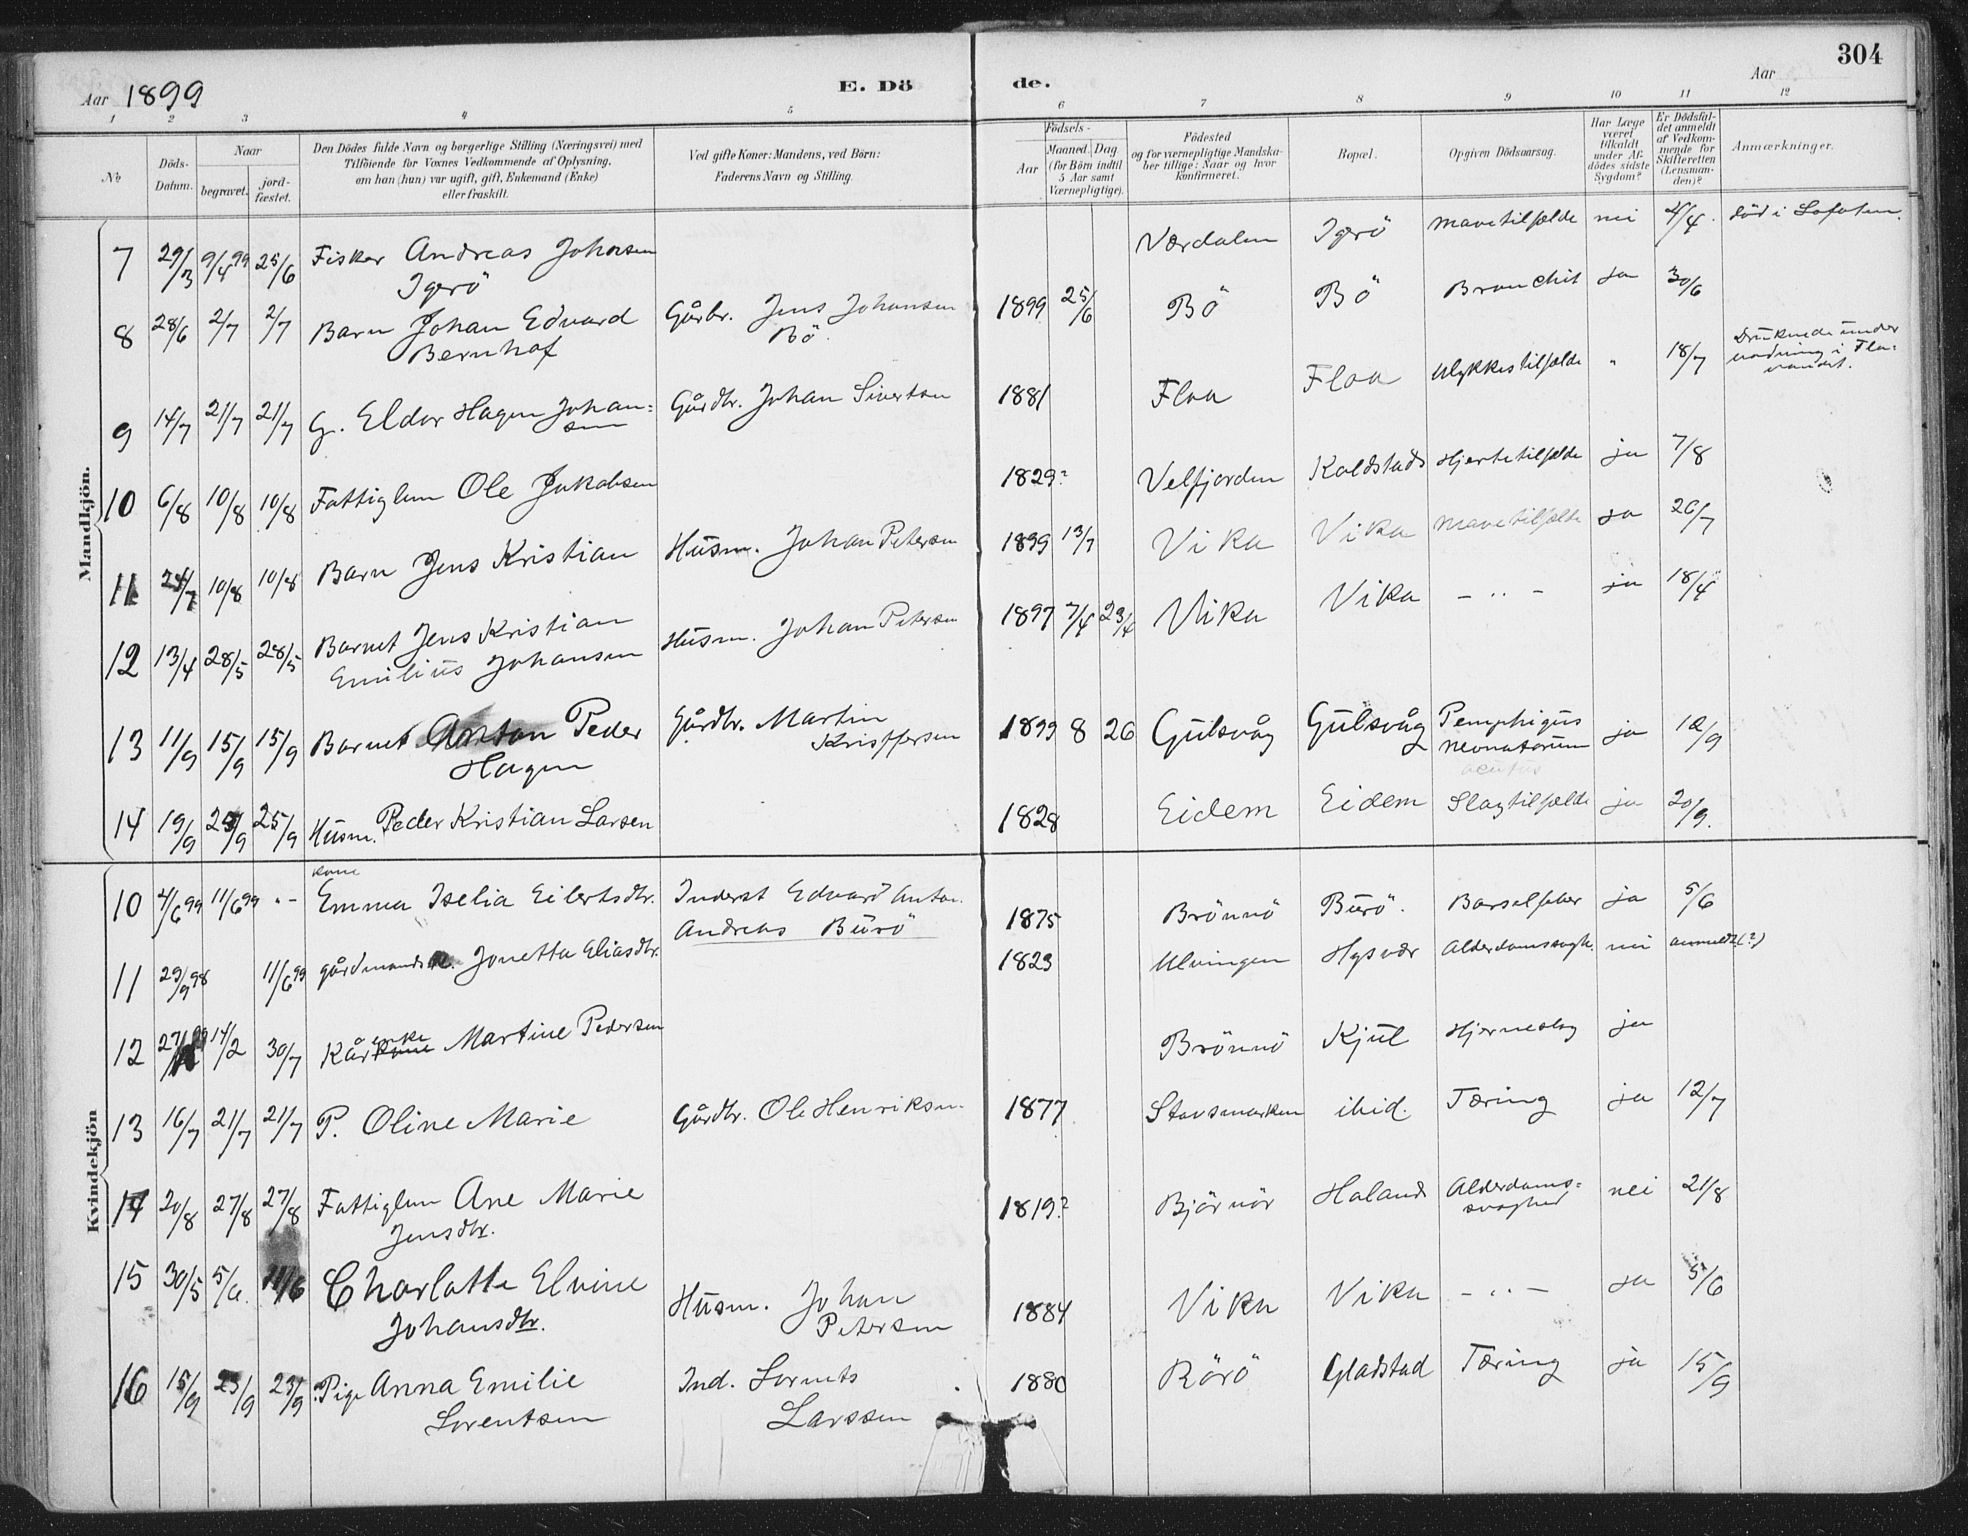 304
Aar 1899 E. Dö de. Aar
1 2 3 4 5 6 7 8 9 10 11 12
No
Döds-Datum.
Naar
begravet.
jord-fæstet.
Den Dödes fulde Navn og borgerlige Stilling (Næringsvei) med
Tilföiende for Voxnes Vedkommende af Oplysning,
om han (hun) var ugift, gift, Enkemand (Enke)
eller fraskilt.
Ved gifte Koner: Mandens, ved Börn:
Faderens Navn og Stilling.
Födsels-
Aar
Maaned. Dag
(for Börn indtil
5 Aar samt
Værnepligtige).
Födested
og for værnepligtige Mandska-
ber tillige: Naar og hvor
konfirmeret.
Bopæl.
Opgiven Dödsaarsag.
Har Læge
været
tilkaldt
under Af-
dödes sidste
Sygdom?
Er Dödsfal-
det anmeldt
af Vedkom-
mende for
Skifteretten
(Lensman-
den)?
Anmærkninger.
Mandkjön.
7 29/3 9/4 99 25/6 Fisker Andreas Johnsen Værdalen Igerö Mavetilfælde nei 4/4. död i Lofoten.
Igerö
8 28/6 2/7 2/7 Barn Johan Edvard Gårbr. Jens Johansen 1899 25/6 Bö Bö Bronchit ja 30/6
Bernhof Bö.
9 14/7 21/7 21/7 G. Eldor Hagen Johan= Gårdbr. Johan Sivertsen 1881 Floa Floa Ulykkestilfælde " 18/7 Druknede under
sen vadning i Flo=
vandet.
10 6/8 10/8 10/8 Fattiglem Ole Jakobsen 1829? Velfjorden Koldstads Hjertetilfælde ja 7/8
11 24/7 10/8 10/8 Barn Jens Kristian Husm. Johan Petersen 1899 13/7 Vika Vika Mavetilfælde ja 26/7
12 13/4 28/5 28/5 Barnet Jens Kristian Husm. Johan Petersen 1897 7/4 23/4 Vika Vika - " - ja 18/4
Emilius Johansen
13 11/9 15/9 15/9 Barnet Anton Peder Gårdbr. Martin 1899 8 26 Gulsvåg Gulsvåg Pemphigus ja 12/9
Hagen Kristffersen neonatorum
acutus
14 19/9 25/9 25/9 Husm. Peder Kristian Larsen 1828 Eidem Eidem Slagtilfælde ja 20/9.
Kvindekjön
kone
10 4/6 99 11/6 99 " - Emma Iselia Eilertsdtr. Inderst Edvard Anton 1875 Brönnö Burö. Barselfeber ja 5/6
Andreas Burö
11 29/9 98 11/6 99 gårdmands Jonetta Eliasdtr. 1823 Ulvingen Hysvær Alderdomssvagh. nei anmeldt (?)
12 27/ 99 14/2 30/7 Kår kone enke Martine Pedersen Brönnö Kjul Hjerneslag ja
13 16/7 21/7 21/7 P. Oline Marie Gårdbr. Ole Henriksen. 1877 Stavsmarken ibid. Tæring ja 12/7
14 20/8 27/8 27/8 Fattiglem Ane Marie 1819? Björnör Holand Alderdoms= nei 21/8
Jensdtr. svaghed
15 30/5 5/6. 11/6 Charlotte Elvine Husm. Johan 1884 Vika Vika - " - ja 5/6
Johansdtr. Petersen
16 15/9 23/9 23/9 Pige Anna Emilie Ind. Lorents 1880 Rörö Gladstad Tæring ja 15/9
Lorentsen Larssen